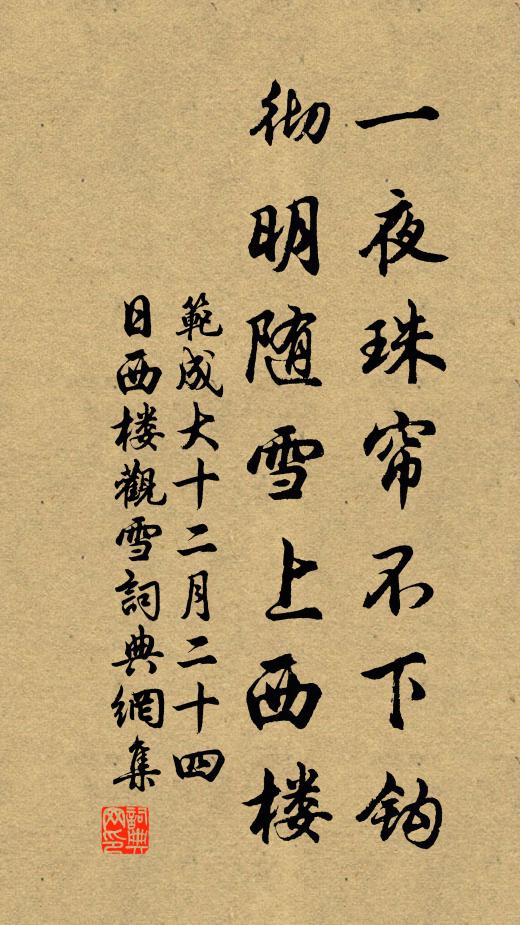 一夜珠帘不下钩
彻明随雪上西楼
範成大十二月二十四
日西楼觀雪詞典網集
詞典网印